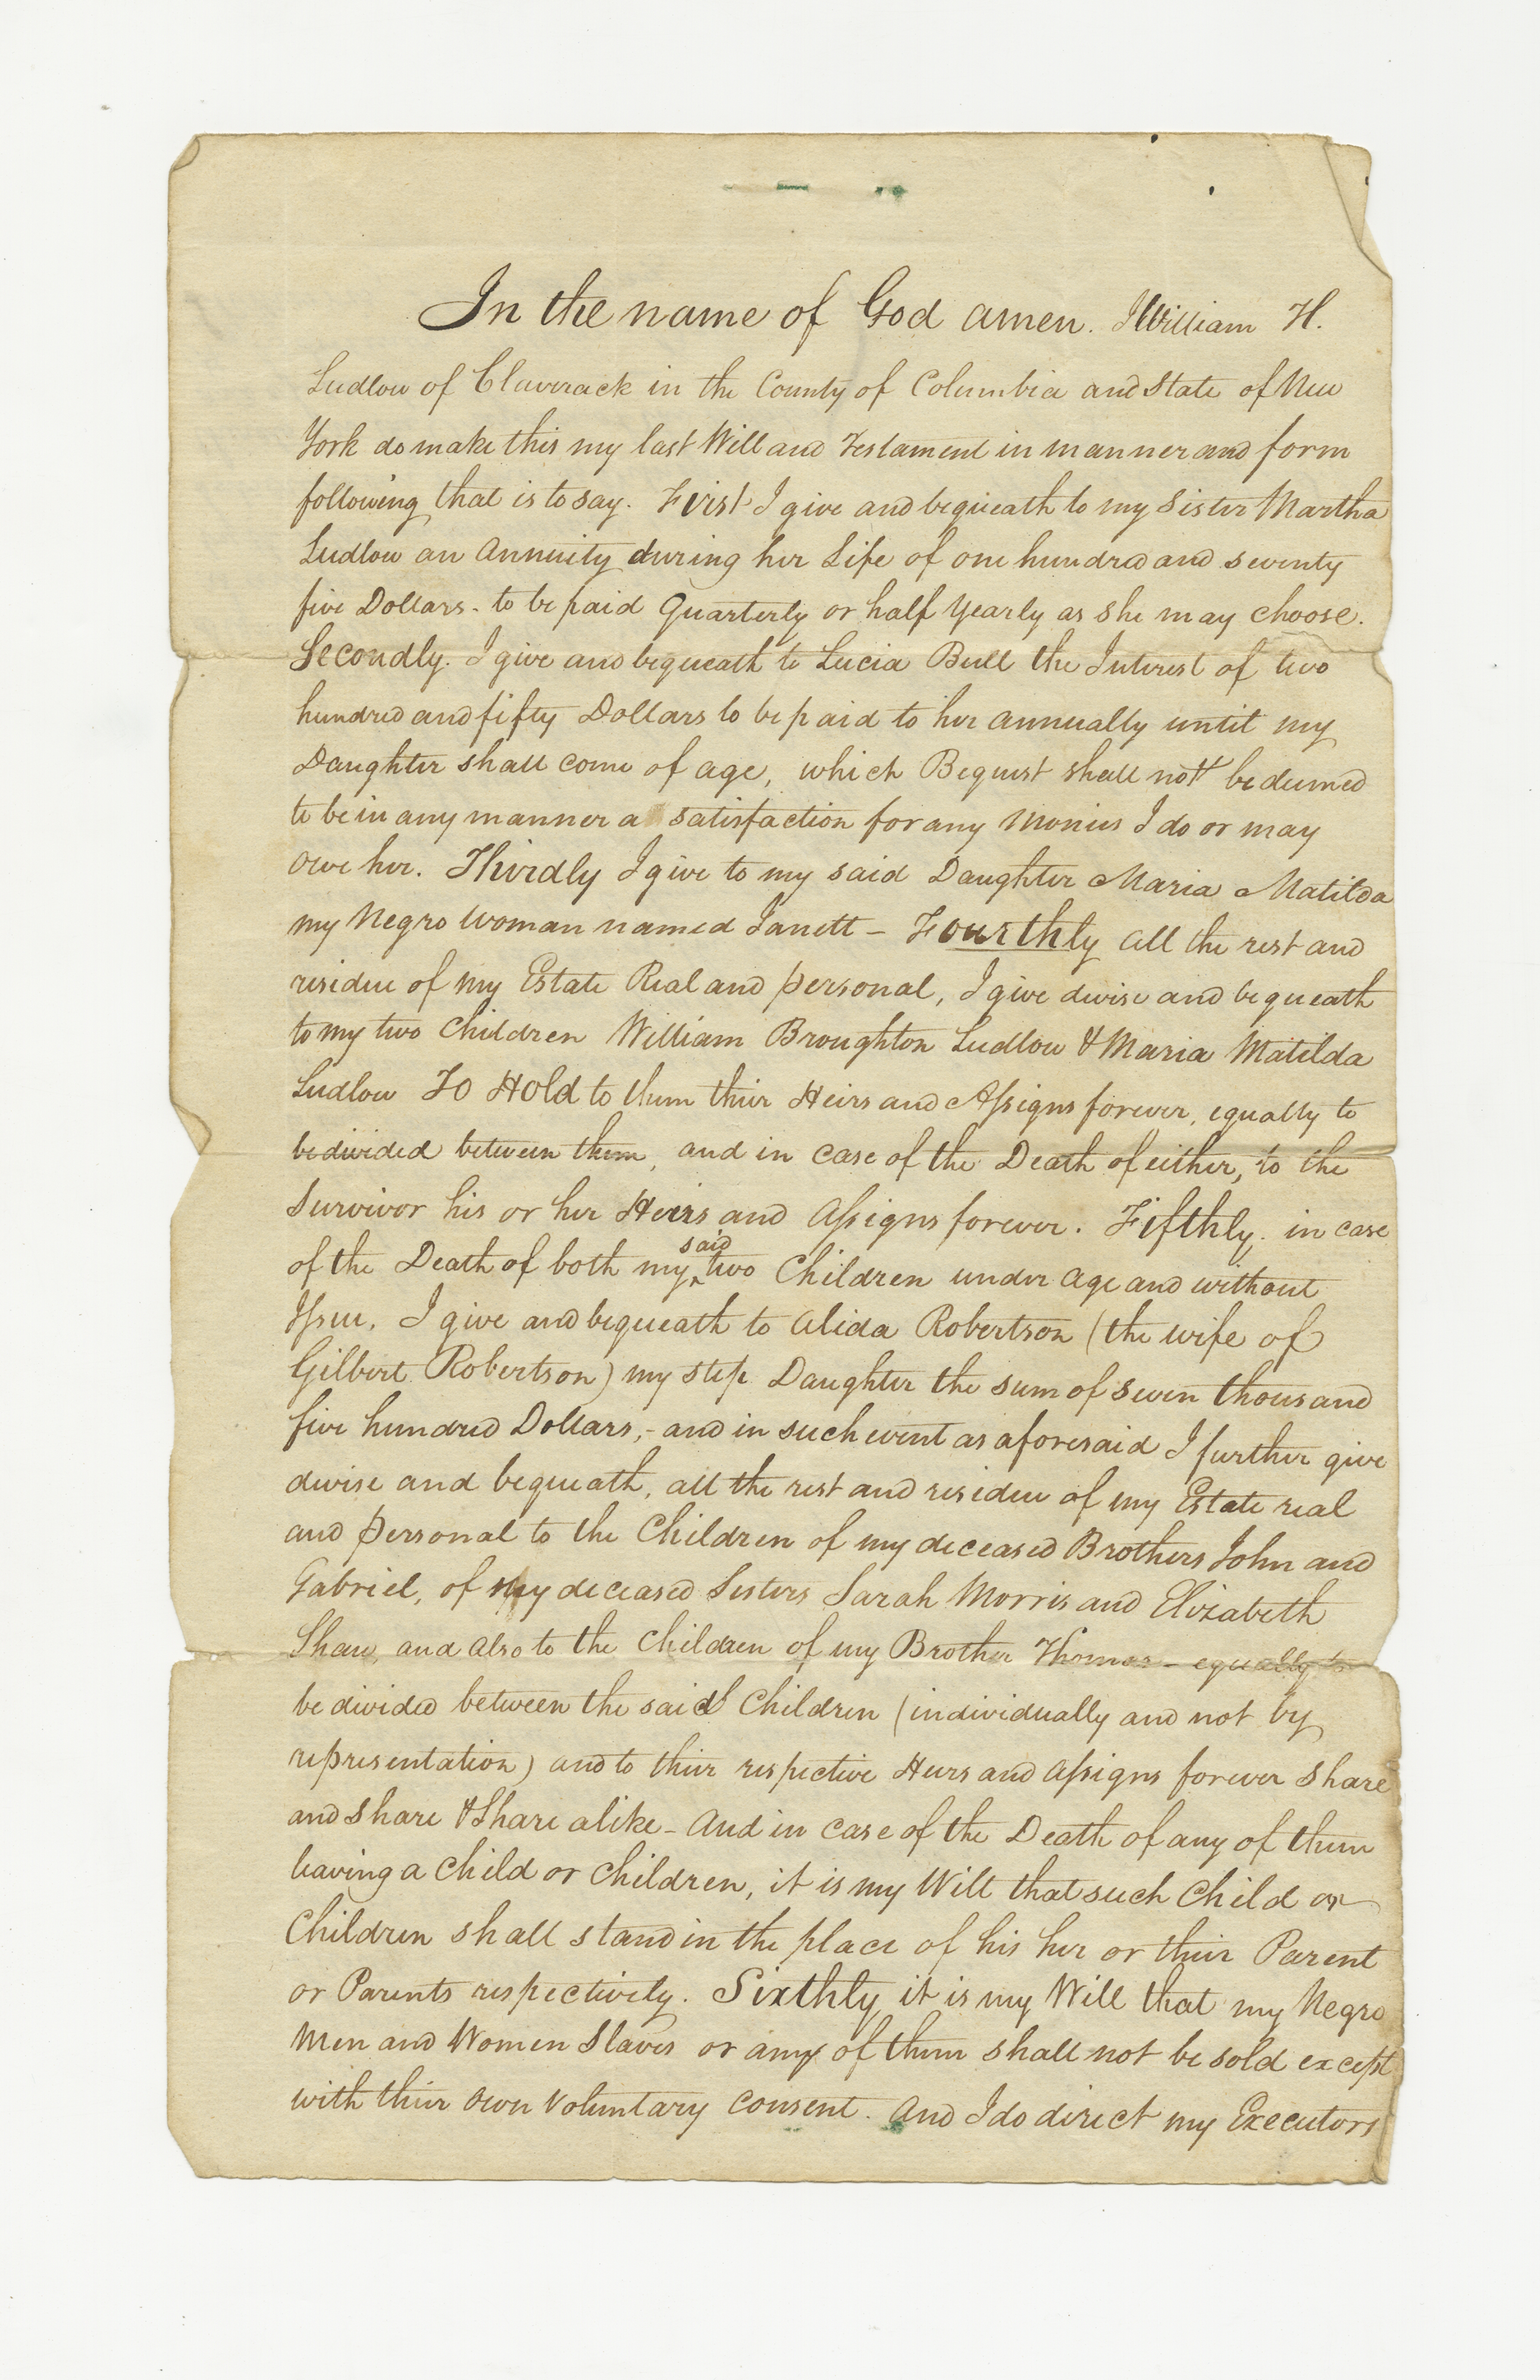 In the name of God amen. I William H.
Ludlow of Claverack in the County of Columbia and State of New
York do make this my last Will and Testament in manner and form
following that is to say. First I give and bequeath to my Sister Martha
Ludlow an Annuity during her Life of one hundred and seventy
five Dollars - to be paid Quarterly or half Yearly as she may choose.
Secondly. I give and bequeath to Lucia Bull the Interest of two
hundred and fifty Dollars to be paid to her annually until my
Daughter shall come of age, which Bequest shall not be deemed
to be in any manner a satisfaction for any Monies I do or may
owe her. Thirdly I give to my said Daughter Maria Matilda
my Negro Woman named Janett - Fourthly all the rest and
residue of my Estate Real and personal, I give devise and bequeath
to my two Children William Broughton Ludlow & Maria Matilda
Ludlow To Hold to them their Heirs and Assigns forever, equally to
be divided between them, and in case of the Death of either, to the
Survivor his or her Heirs and Assigns forever. Fifthly. in case
of the Death of both my said two Children under age and without
Issue. I give and bequeath to Alida Robertson (the wife of
Gilbert Robertson) my step Daughter the sum of seven thousand
five hundred Dollars, - and in such event as aforesaid I further give
devise and bequeath, all the rest and residue of my Estate real
and personal to the Children of my deceased Brothers John and
Gabriel, of my deceased Sisters Sarah Morris and Elizabeth
Shaw, and also to the Children of my Brother Thomas - equally to
be divided between the said Children (individually and not by
representation) and to their respective Heirs and Assigns forever Share
and Share & Share alike - And in case of the Death of any of them
leaving a Child or Children, it is my Will that such Child or
Children shall stand in the place of his her or their Parent
or Parents respectively. Sixthly it is my Will that my Negro
Men and Women Slaves or any of them shall not be sold except
with their own Voluntary consent. And I do direct my Executors